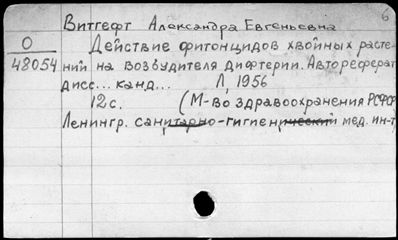 6
Витгефт Александра Евгеньевна
О Действие фитонцидов хвойных расте-
48054 ний на возбудителя дифтерии. Автореферат
дисс... канд... Л, 1956
12 с. (М-во здравоохранения РСФСР
Ленингр. санитарно-гигиенический мед. ин-т